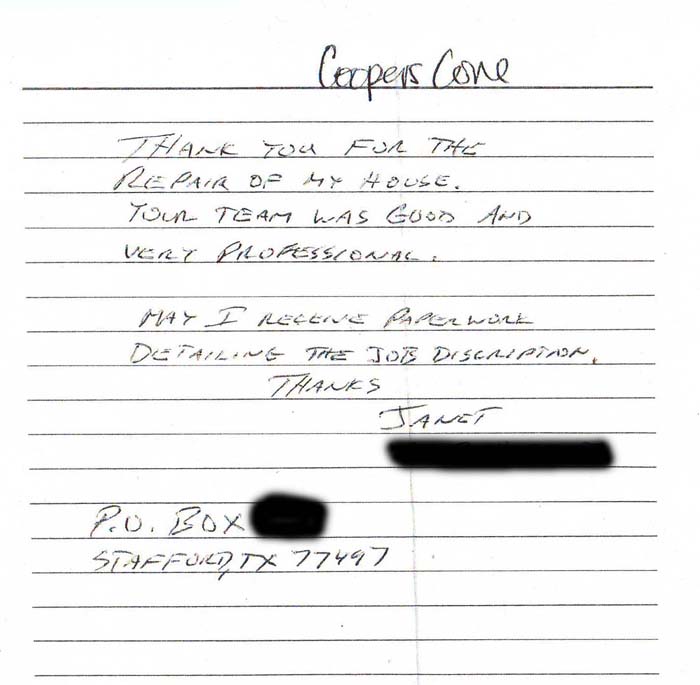 Coopers Cove
THANK YOU FOR THE
REPAIR OF MY HOUSE.
YOUR TEAM WAS GOOD AND
VERY PROFESSIONAL.
MAY I RECEIVE PAPERWORK
DETAILING THE JOB DISCRIPTION.
THANKS
JANET
P.O. BOX
STAFFORD, TX 77497